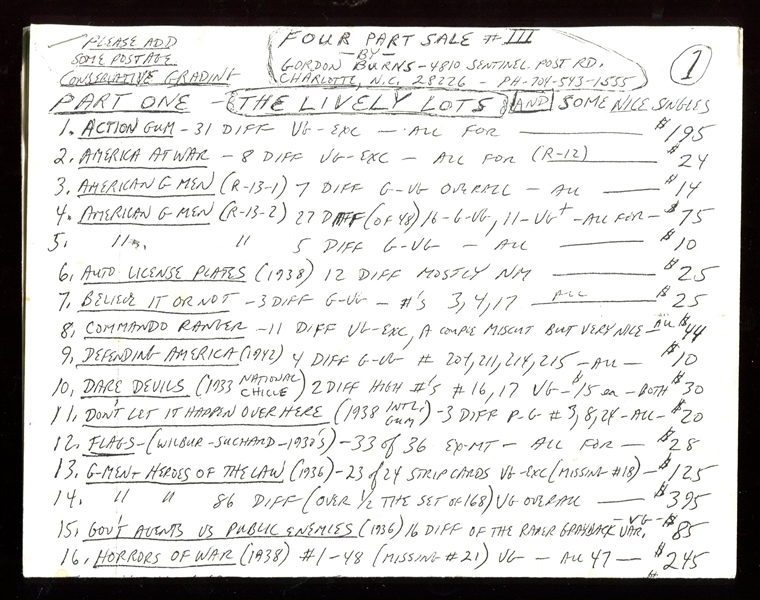 PLEASE ADD
SOME POSTAGE
CONSERVATIVE GRADING
FOUR PART SALE # III
- BY -
GORDON BURNS - 4810 SENTINEL POST RD.
CHARLOTTE, N.C. 28226 - PH-704-543-1555
1
PART ONE - THE LIVELY LOTS AND SOME NICE SINGLES
1. ACTION GUM - 31 DIFF VG-EXC - ALL FOR - $195
2. AMERICA AT WAR - 8 DIFF VG-EXC - ALL FOR (R-12) $24
3. AMERICAN G MEN (R-13-1) 7 DIFF G-VG OVERALL - ALL - $14
4. AMERICAN G MEN (R-13-2) 27 DIFF (OF 48) 16-G-VG, 11-VG+ - ALL FOR - $75
5. " " 5 DIFF G-VG - ALL - $10
6. AUTO LICENSE PLATES (1938) 12 DIFF MOSTLY NM - $25
7. BELIEVE IT OR NOT - 3 DIFF G-VG - #'S 3, 4, 17 ALL $25
8. COMMANDO RANGER - 11 DIFF VG-EXC, A COUPLE MISCUT BUT VERY NICE - ALL $44
9. DEFENDING AMERICA (1942) 4 DIFF G-VG # 204, 211, 214, 215 - ALL - $10
10. DARE DEVILS (1933 NATIONAL CHICLE) 2 DIFF HIGH #'S #16, 17 VG - $15 ea - BOTH $30
11. DON'T LET IT HAPPEN OVER HERE (1938 INTL. GUM) - 3 DIFF P-G # 3, 8, 24 - ALL - $20
12. FLAGS - (WILBUR-SUCHARD-1930'S) - 33 of 36 EX-MT - ALL FOR - $28
13. G-MEN + HEROES OF THE LAW (1936) - 23 of 24 STRIP CARDS VG-EXC (MISSING #18) - $125
14. " " 86 DIFF (OVER 1/2 THE SET OF 168) VG OVERALL - $395
15. GOV'T AGENTS VS PUBLIC ENEMIES (1936) 16 DIFF OF THE RARER GRAYBACK VAR. - VG - $85
16. HORRORS OF WAR (1938) #1-48 (MISSING #21) VG - ALL 47 - $245